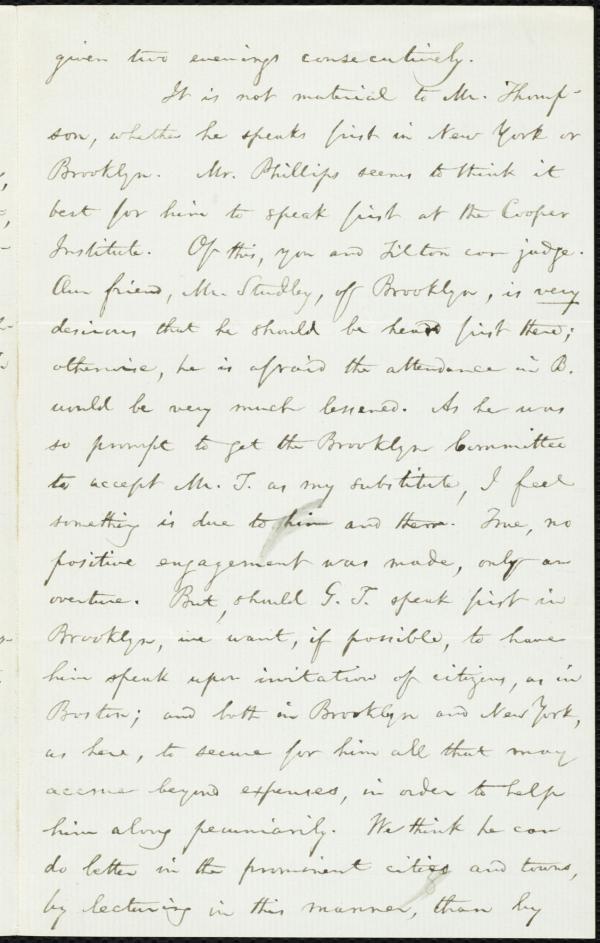 given two evenings consecutively.
It is not material to Mr. Thomp-
son, whether he speaks first in New York or
Brooklyn. Mr. Phillips seems to think it
best for him to speak first at the Cooper
Institute. Of this, you and Tilton can judge.
Our friend, Mr. Studley, of Brooklyn, is very
desirous that he should be heard first there;
otherwise, he is afraid the attendance in B.
would be very much lessened. As he was
so prompt to get the Brooklyn Committee
to accept Mr. T. as my substitute, I feel
something is due to him and them. True, no
positive engagement was made, only an
overture. But, should G. T. speak first in
Brooklyn, we want, if possible, to have
him speak upon invitation of citizens, as in
Boston; and both in Brooklyn and New York,
as here, to secure for him all that may
accrue beyond expenses, in order to help
him along pecuniarily. We think he can
do better in the prominent cities and towns,
by lecturing in this manner, than by